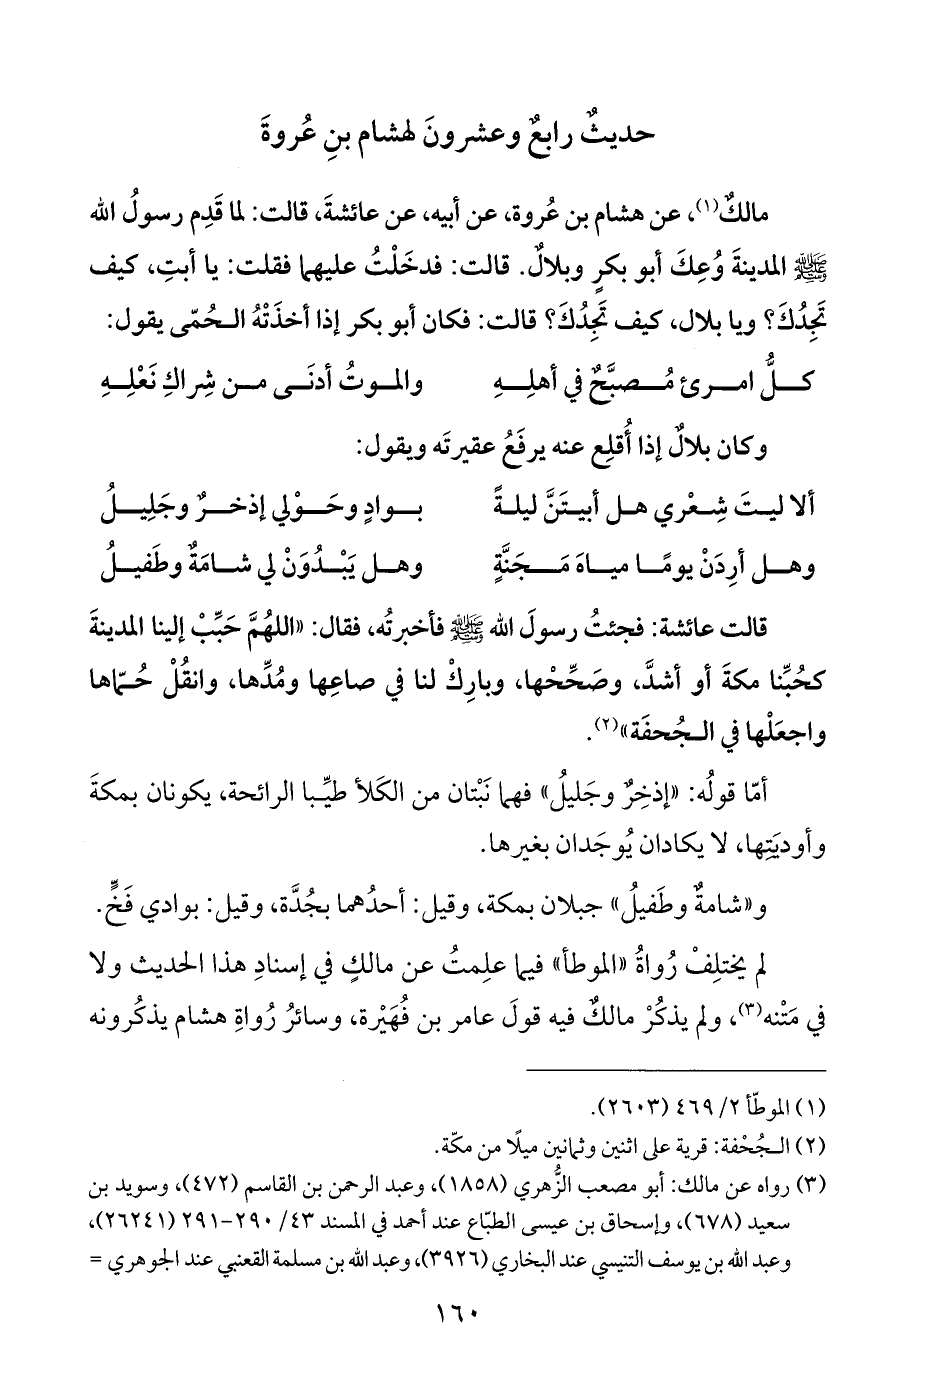 حديثٌ رابعٌ وعشرونَ لهشام بنِ عُروةَ
مالكٌ(١)، عن هشام بن عُروة، عن أبيه، عن عائشةَ، قالت: لما قَدِم رسولُ الله
ﷺ المدينةَ وُعِكَ أبو بكرٍ وبلالٌ. قالت: فدخَلْتُ عليهما فقلت: يا أبتِ، كيف
تَجِدُكَ؟ ويا بلال، كيف تَجِدُكَ؟ قالت: فكان أبو بكر إذا أخذَتْهُ الـحُمّى يقول:
كــلُّ امــرئ مُــصبَّحٌ في أهلِــهِ والمـوتُ أدنَــى مــن شِراكِ نَعْلِــهِ
وكان بلالٌ إذا أُقلِع عنه يرفَعُ عقيرتَه ويقول:
ألا ليـتَ شِـعْري هـل أبيـتَنَّ ليلةً بــوادٍ وحَــوْلي إذخــرٌ وجَلِيــلُ
وهــل أرِدَنْ يومًــا ميــاهَ مَــجَنَّةٍ وهــل يَبْــدُوَنْ لي شــامَةٌ وطَفيــلُ
قالت عائشة: فجئتُ رسولَ الله ﷺ فأخبرتُه، فقال: «اللهُمَّ حَبِّبْ إلينا المدينةَ
كحُبِّنا مكةَ أو أشدَّ، وصَحِّحْها، وبارِكْ لنا في صاعِها ومُدِّها، وانقُلْ حُـمّاها
واجعَلْها في الـجُحفَة»(٢).
أمّا قولُه: «إذخِرٌ وجَليلُ» فهما نَبْتان من الكَلأ طيِّبا الرائحة، يكونان بمكةَ
وأوديَتِها، لا يكادان يُوجَدان بغيرها.
و«شامةٌ وطَفيلُ» جبلان بمكة، وقيل: أحدُهما بجُدَّة، وقيل: بوادي فَخٍّ.
لم يختلِفْ رُواةُ «الموطأ» فيما علِمتُ عن مالكٍ في إسنادِ هذا الحديث ولا
في مَتْنه(٣)، ولم يذكُرْ مالكٌ فيه قولَ عامر بن فُهَيْرة، وسائرُ رُواةِ هشام يذكُرونه
(١) الموطّأ ٢/ ٤٦٩ (٢٦٠٣).
(٢) الـجُحْفة: قرية على اثنين وثمانين ميلًا من مكّة.
(٣) رواه عن مالك: أبو مصعب الزُّهري (١٨٥٨)، وعبد الرحمن بن القاسم (٤٧٢)، وسويد بن
سعيد (٦٧٨)، وإسحاق بن عيسى الطبّاع عند أحمد في المسند ٤٣/ ٢٩٠-٢٩١ (٢٦٢٤١)،
وعبد الله بن يوسف التنيسي عند البخاري (٣٩٢٦)، وعبد الله بن مسلمة القعنبي عند الجوهري =
١٦٠